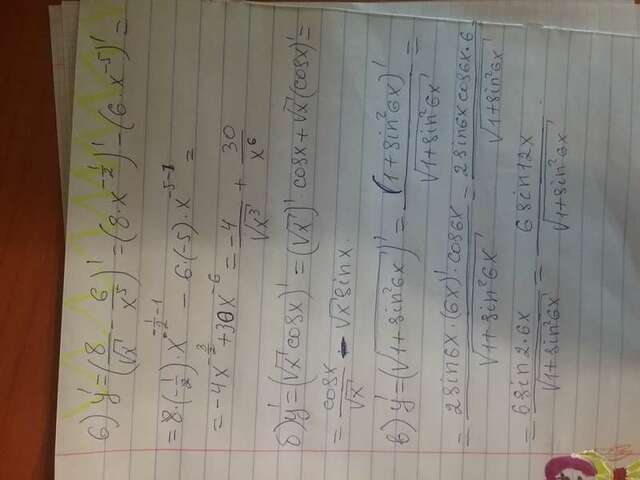 в) y' = (8/√x − 6/x⁵)' = (8·x^(−1/2))' − (6·x^(−5))' =
= 8·(−1/2)·x^(−1/2−1) − 6·(−5)·x^(−5−1) =
= −4x^(−3/2) + 30x^(−6) = −4/√x³ + 30/x⁶
б) y' = (√x cosx)' = (√x)' cosx + √x (cosx)' =
= cosx/√x − √x sinx.
в) y' = (√(1+sin²6x))' = (1+sin²6x)'/√(1+sin²6x) =
= 2sin6x·(6x)'·cos6x/√(1+sin²6x) = 2sin6x cos6x·6/√(1+sin²6x)
= 6sin2·6x/√(1+sin²6x) = 6sin12x/√(1+sin²6x)